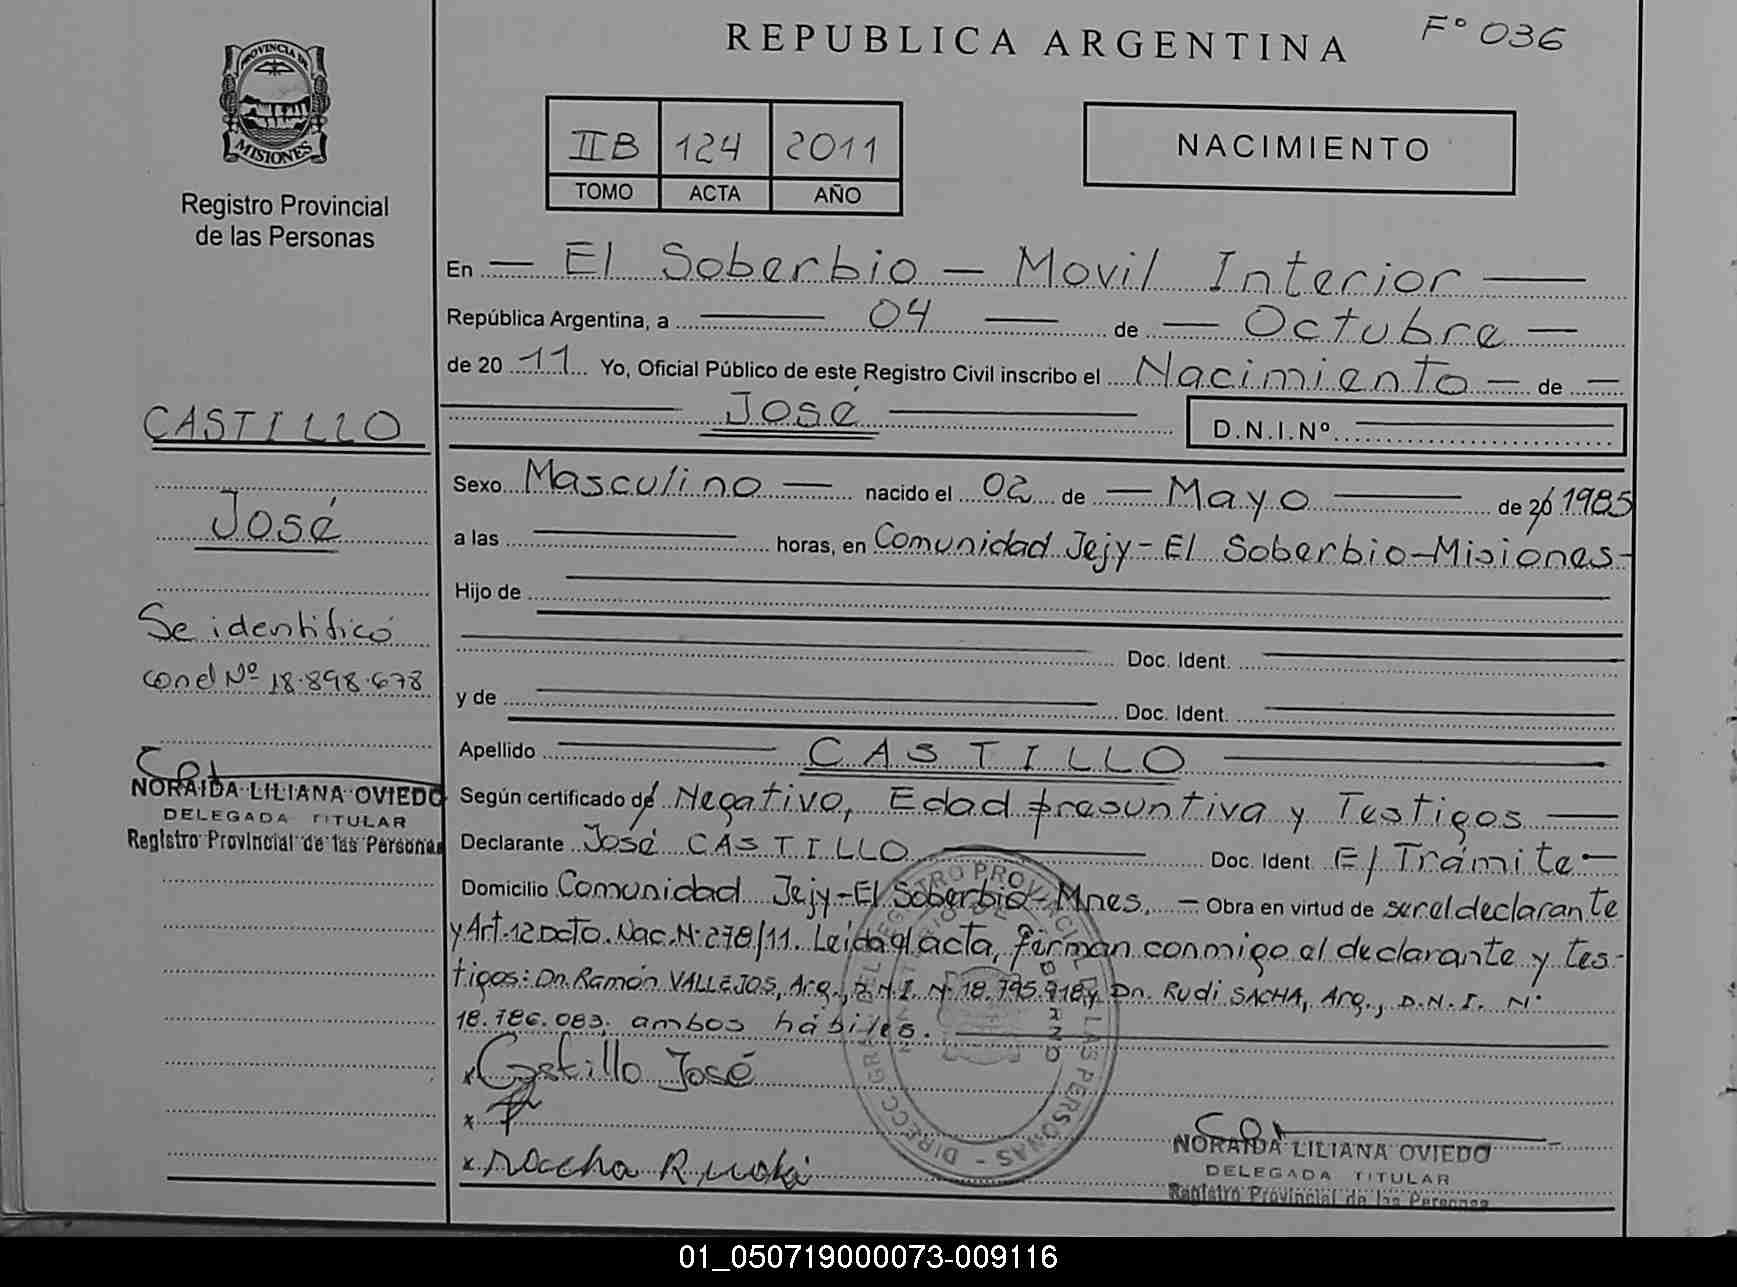 REPUBLICA ARGENTINA
Fº 036
PROVINCIA DE
MISIONES
Registro Provincial
de las Personas
IIB 124 2011
TOMO ACTA AÑO
NACIMIENTO
En — El Soberbio — Movil Interior —
República Argentina, a — 04 — de — Octubre —
de 20 11 Yo, Oficial Público de este Registro Civil inscribo el Nacimiento — de —
José
D.N.I.Nº
Sexo Masculino — nacido el 02 de — Mayo — de 20 1985
a las — horas, en Comunidad Jejy - El Soberbio - Misiones -
Hijo de
Doc. Ident.
y de
Doc. Ident.
Apellido — CASTILLO —
Según certificado de Negativo, Edad presuntiva y Testigos —
Declarante José CASTILLO — Doc. Ident. E/Trámite —
Domicilio Comunidad Jejy - El Soberbio - Mnes. — Obra en virtud de ser el declarante
y Art. 12 Dcto. Nac. Nº 278/11. Leída el acta, firman conmigo el declarante y tes-
tigos: Dn. Ramón VALLEJOS, Arg., D.N.I. Nº 18.795.918 y Dn. Rudi SACHA, Arg., D.N.I. Nº
18.786.083, ambos hábiles.
x Castillo José
x
x
NORAIDA LILIANA OVIEDO
DELEGADA TITULAR
Registro Provincial de las Personas
CASTILLO
José
Se identificó
con el Nº 18.898.678
NORAIDA LILIANA OVIEDO
DELEGADA TITULAR
Registro Provincial de las Personas
01_050719000073-009116